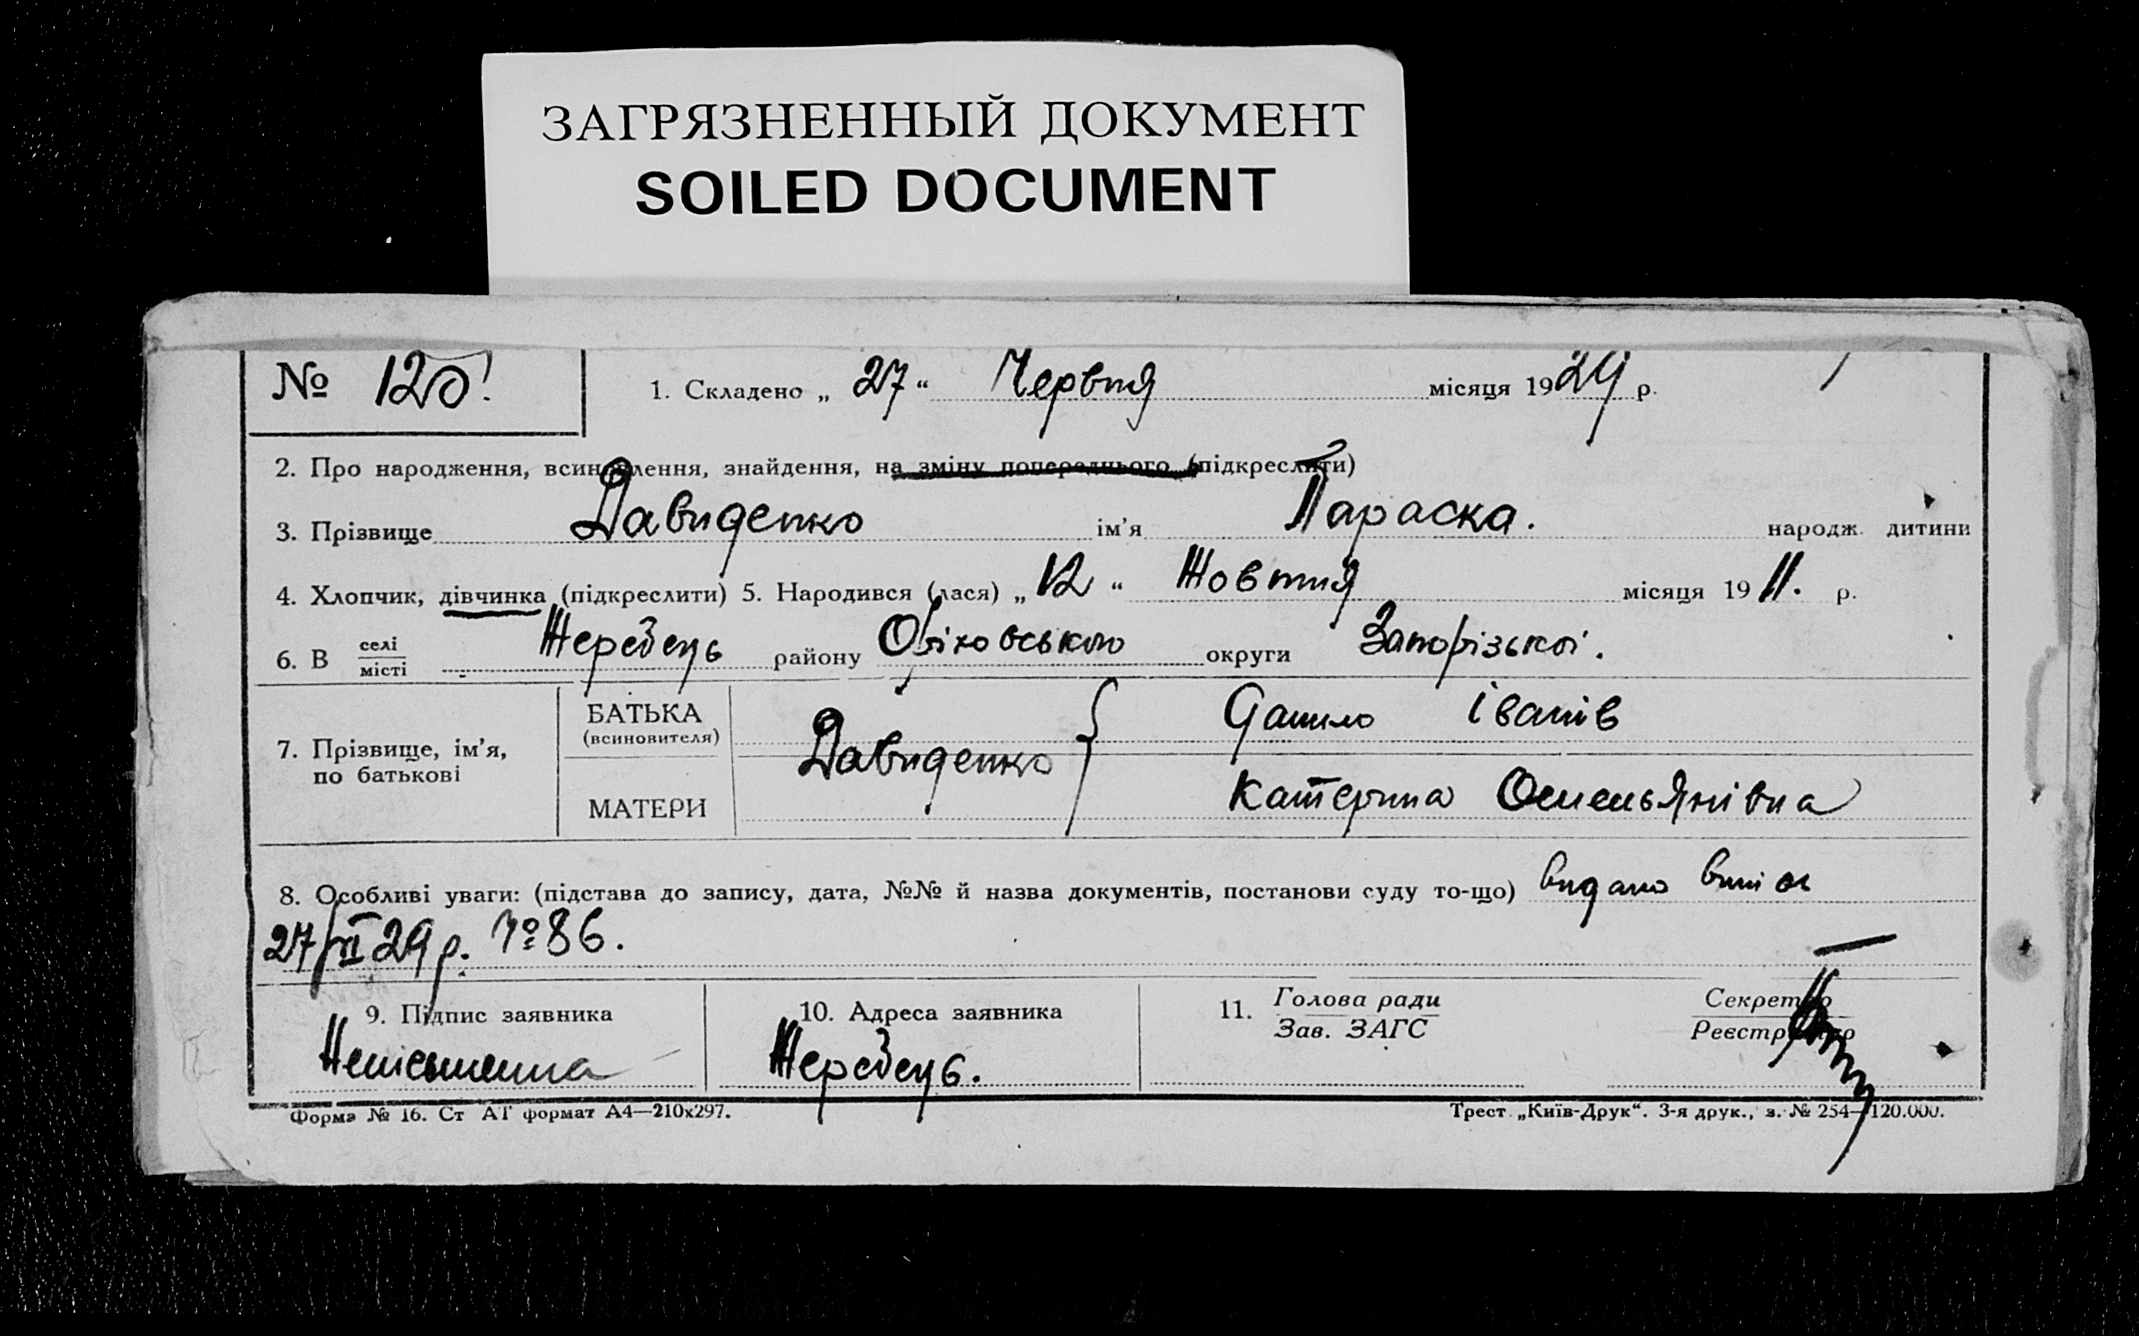 ЗАГРЯЗНЕННЫЙ ДОКУМЕНТ
SOILED DOCUMENT
№ 120
1. Складено „ 27 “ Червня місяця 1929 р.
2. Про народження, всиновлення, знайдення, на зміну попереднього (підкреслити)
3. Прізвище Давиденко ім’я Параска. народж. дитини
4. Хлопчик, дівчинка (підкреслити) 5. Народився (лася) „ 12 “ Жовтня місяця 1911. р.
6. В селі/місті Жеребець району Оріховського округи Запорізької.
7. Прізвище, ім’я, по батькові
БАТЬКА (всиновителя) Давиденко } Данило Іванів
МАТЕРИ Катерина Омельянівна
8. Особливі уваги: (підстава до запису, дата, №№ й назва документів, постанови суду то-що) видано
27/VI 29 р. № 86.
9. Підпис заявника 10. Адреса заявника 11. Голова ради / Зав. ЗАГС Секретар / Реєстратор
Неписьменна Жеребець.
Форма № 16. Ст АТ формат А4—210х297. Трест „Київ-Друк“. 3-я друк., з. № 254—120.000.